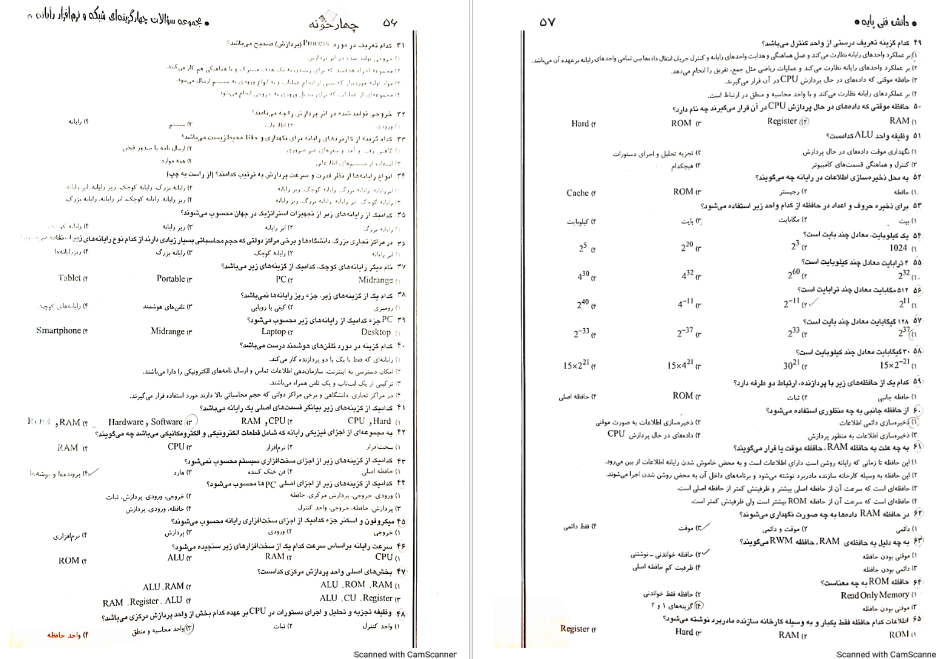 ۵۶ چهارخونه • مجموعه سؤالات چهارگزینه‌ای شبکه و نرم‌افزار رایانه •
۳۱ کدام تعریف در مورد Process (پردازش) صحیح می‌باشد؟
۳۲ خروجی تولید شده در اثر پردازش را چه می‌نامند؟
۱) ورودی ۲) اطلاعات ۳) سیستم ۴) رایانه
۳۳ کدام گزینه از کاربردهای رایانه برای نگهداری و حفاظ محیط‌زیست می‌باشد؟
۴) همه موارد
۳۴ انواع رایانه‌ها از نظر قدرت و سرعت پردازش به ترتیب کدامند؟ (از راست به چپ)
۳۵ کدامیک از رایانه‌های زیر از تجهیزات استراتژیک در جهان محسوب می‌شوند؟
۱) رایانه بزرگ ۲) ابر رایانه ۳) ریز رایانه ۴) رایانه کوچک
۳۶ در مراکز تجاری بزرگ، دانشگاه‌ها و برخی مراکز دولتی که حجم محاسباتی بسیار زیادی دارند از کدام نوع رایانه‌های زیر استفاده
۱) ابر رایانه ۲) رایانه کوچک ۳) رایانه بزرگ ۴) ریزرایانه‌ها
۳۷ نام دیگر رایانه‌های کوچک، کدامیک از گزینه‌های زیر می‌باشد؟
۱) Midrange ۲) PC ۳) Portable ۴) Tablet
۳۸ کدام یک از گزینه‌های زیر، جزء ریز رایانه‌ها نمی‌باشد؟
۱) رومیزی ۲) کیفی یا رویایی ۳) تلفن‌های هوشمند ۴) رایانه‌های کوچک
۳۹ PC جزء کدامیک از رایانه‌های زیر محسوب می‌شود؟
۱) Desktop ۲) Laptop ۳) Midrange ۴) Smartphone
۴۰ کدام گزینه در مورد تلفن‌های هوشمند درست می‌باشد؟
۱) رایانه‌ای که فقط با یک یا دو پردازنده کار می‌کند.
۲) امکان دسترسی به اینترنت، سازمان‌دهی اطلاعات تماس و ارسال نامه‌های الکترونیکی را دارا می‌باشند.
۳) ترکیبی از یک لپ‌تاپ و یک تلفن همراه می‌باشند.
۴) در مراکز تجاری، دانشگاهی و برخی مراکز دولتی که حجم محاسباتی بالا دارند مورد استفاده قرار می‌گیرند.
۴۱ کدامیک از گزینه‌های زیر بیانگر قسمت‌های اصلی یک رایانه می‌باشد؟
۱) Hard و CPU ۲) CPU و RAM ۳) Software و Hardware ۴) RAM و
۴۲ به مجموعه‌ای از اجزای فیزیکی رایانه که شامل قطعات الکترونیکی و الکترومکانیکی می‌باشد چه می‌گویند؟
۱) سخت‌افزار ۲) نرم‌افزار ۳) CPU ۴) RAM
۴۳ کدامیک از گزینه‌های زیر از اجزای سخت‌افزاری سیستم محسوب نمی‌شود؟
۱) حافظه اصلی ۲) فن خنک کننده ۳) هارد ۴) پرونده‌ها و پوشه‌ها
۴۴ کدامیک از گزینه‌های زیر از اجزای اصلی PC ها محسوب می‌شود؟
۱) ورودی، خروجی، پردازش مرکزی، حافظه ۲) خروجی، ورودی، پردازش، ثبات
۳) پردازش، حافظه، خروجی، واحد کنترل ۴) حافظه، ورودی، پردازش
۴۵ میکروفون و اسکنر جزء کدامیک از اجزای سخت‌افزاری رایانه محسوب می‌شوند؟
۱) خروجی ۲) ورودی ۳) پردازش ۴) نرم‌افزاری
۴۶ سرعت رایانه براساس سرعت کدام یک از سخت‌افزارهای زیر سنجیده می‌شود؟
۱) CPU ۲) RAM ۳) ALU ۴) ROM
۴۷ بخش‌های اصلی واحد پردازش مرکزی کدامست؟
۱) ALU ، ROM ، RAM ۲) ALU ، RAM
۳) ALU ، CU ، Register ۴) RAM ، Register ، ALU
۴۸ وظیفه تجزیه و تحلیل و اجرای دستورات در CPU بر عهده کدام بخش از واحد پردازش مرکزی می‌باشد؟
۱) واحد کنترل ۲) ثبات ۳) واحد محاسبه و منطق ۴) واحد حافظه
Scanned with CamScanner
• دانش فنی پایه • ۵۷
۴۹ کدام گزینه تعریف درستی از واحد کنترل می‌باشد؟
۱) بر عملکرد واحدهای رایانه نظارت می‌کند و عمل هماهنگی و هدایت واحدهای رایانه و کنترل جریان انتقال داده‌ها بین تمامی واحدهای رایانه برعهده آن می‌باشد.
۲) بر عملکرد واحدهای رایانه نظارت می‌کند و عملیات ریاضی مثل جمع، تفریق را انجام می‌دهد.
۳) حافظه موقتی که داده‌های در حال پردازش CPU در آن قرار می‌گیرند.
۴) بر عملکردهای رایانه نظارت می‌کند و با واحد محاسبه و منطق در ارتباط است.
۵۰ حافظه موقتی که داده‌های در حال پردازش CPU در آن قرار می‌گیرند چه نام دارد؟
۱) RAM ۲) Register ۳) ROM ۴) Hard
۵۱ وظیفه واحد ALU کدامست؟
۱) نگهداری موقت داده‌های در حال پردازش ۲) تجزیه تحلیل و اجرای دستورات
۳) کنترل و هماهنگی قسمت‌های کامپیوتر ۴) هیچکدام
۵۲ به محل ذخیره‌سازی اطلاعات در رایانه چه می‌گویند؟
۱) حافظه ۲) رجیستر ۳) ROM ۴) Cache
۵۳ برای ذخیره حروف و اعداد در حافظه از کدام واحد زیر استفاده می‌شود؟
۱) بیت ۲) مگابایت ۳) بایت ۴) کیلوبایت
۵۴ یک کیلوبایت، معادل چند بایت است؟
۱) 1024 ۲) 2³ ۳) 2²⁰ ۴) 2⁵
۵۵ ۴ ترابایت معادل چند کیلوبایت است؟
۱) 2³² ۲) 2⁶⁰ ۳) 4³² ۴) 4³⁰
۵۶ ۵۱۲ مگابایت معادل چند ترابایت است؟
۱) 2¹¹ ۲) 2⁻¹¹ ۳) 4⁻¹¹ ۴) 2⁴⁰
۵۷ ۱۲۸ گیگابایت معادل چند بایت است؟
۱) 2³⁷ ۲) 2³³ ۳) 2⁻³⁷ ۴) 2⁻³³
۵۸ ۳۰ گیگابایت معادل چند کیلوبایت است؟
۱) 15×2⁻²¹ ۲) 30²¹ ۳) 15×4²¹ ۴) 15×2²¹
۵۹ کدام یک از حافظه‌های زیر با پردازنده، ارتباط دو طرفه دارد؟
۱) حافظه جانبی ۲) ثبات ۳) ROM ۴) حافظه اصلی
۶۰ از حافظه جانبی به چه منظوری استفاده می‌شود؟
۱) ذخیره‌سازی دائمی اطلاعات ۲) ذخیره‌سازی اطلاعات به صورت موقتی
۳) ذخیره‌سازی اطلاعات به منظور پردازش ۴) داده‌های در حال پردازش CPU
۶۱ به چه علت به حافظه RAM، حافظه موقت یا فرار می‌گویند؟
۱) این حافظه تا زمانی که رایانه روشن است دارای اطلاعات است و به محض خاموش شدن رایانه اطلاعات از بین می‌رود.
۲) این حافظه به وسیله کارخانه سازنده مادربرد نوشته می‌شود و برنامه‌های داخل آن به محض روشن شدن اجرا می‌شوند.
۳) حافظه‌ای است که سرعت آن از حافظه اصلی بیشتر و ظرفیتش کمتر از حافظه اصلی است.
۴) حافظه‌ای است که سرعت آن از حافظه ROM بیشتر است ولی ظرفیتش کمتر است.
۶۲ در حافظه RAM داده‌ها به چه صورت نگهداری می‌شوند؟
۱) دائمی ۲) موقت و دائمی ۳) موقت ۴) فقط دائمی
۶۳ به چه دلیل به حافظه‌ی RAM، حافظه RWM می‌گویند؟
۱) موقتی بودن حافظه ۲) حافظه خواندنی ـ نوشتنی
۳) دائمی بودن حافظه ۴) ظرفیت کم حافظه اصلی
۶۴ حافظه ROM به چه معناست؟
۱) Read Only Memory ۲) حافظه فقط خواندنی
۳) موقتی بودن حافظه ۴) گزینه‌های ۱ و ۲
۶۵ اطلاعات کدام حافظه فقط یکبار و به وسیله کارخانه سازنده مادربرد نوشته می‌شود؟
۱) ROM ۲) RAM ۳) Hard ۴) Register
Scanned with CamScanner